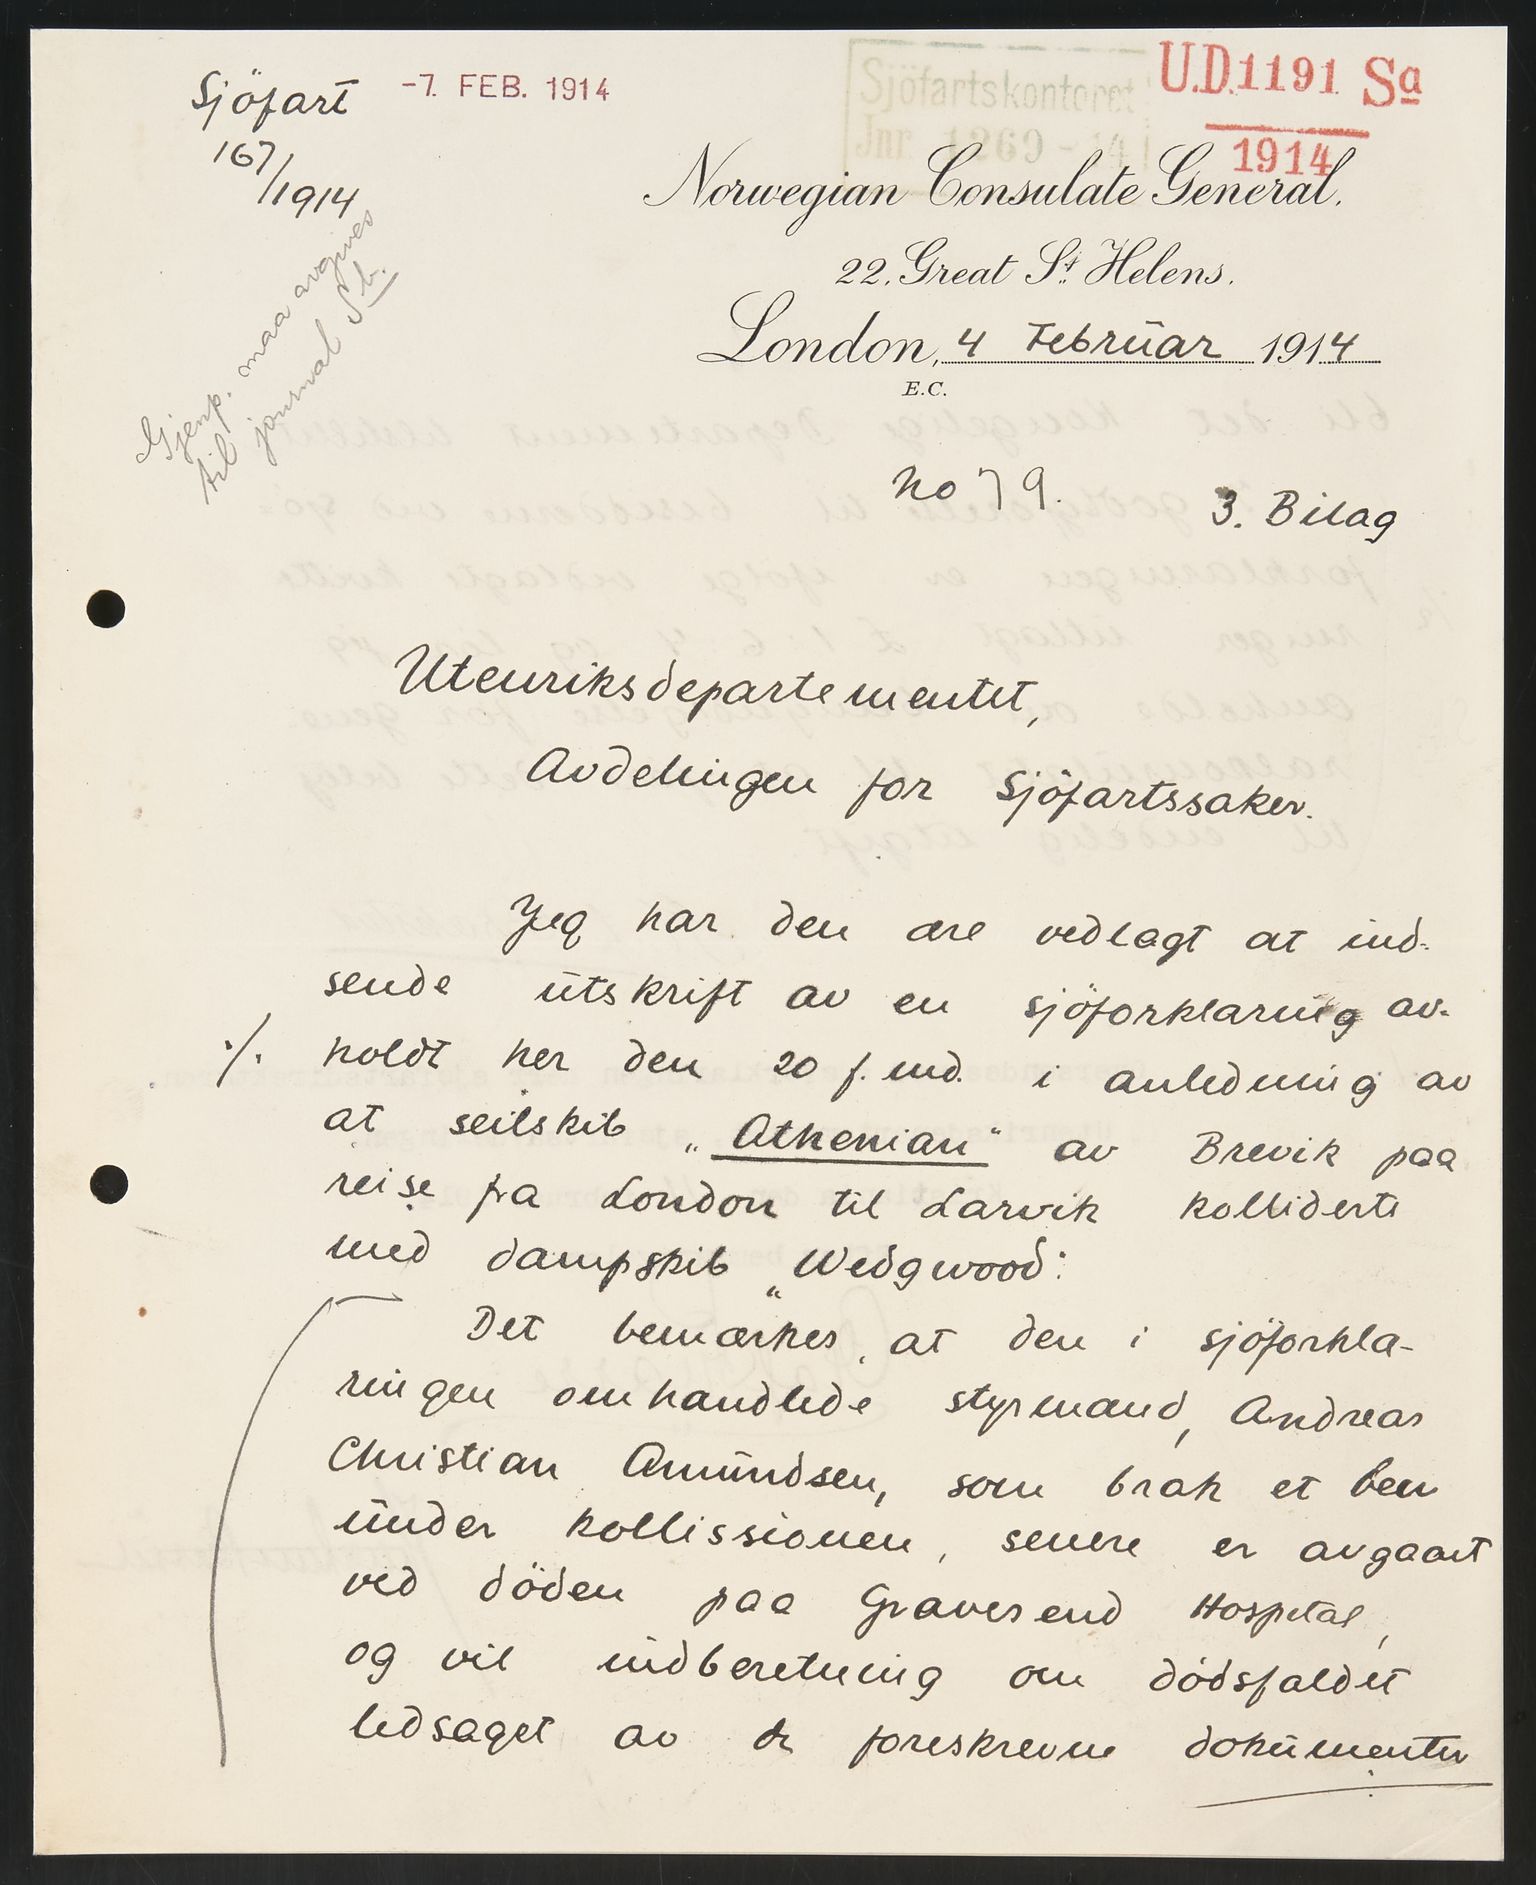 Sjöfart
167/1914
-7. FEB. 1914
Sjöfartskontoret
Jnr. 1269 - 14
U.D. 1191 Sa
1914
Gjenp. maa avgives
til journal Sb.
Norwegian Consulate General.
22, Great St. Helens.
London, 4 Februar 1914
E.C.
No 79.
3. Bilag
Utenriksdepartementet,
Avdelingen for Sjöfartssaker.
Jeg har den ære vedlagt at ind-
sende utskrift av en sjöforklaring av-
./. holdt her den 20 f. md. i anledning av
at seilskib „Athenian" av Brevik paa
reise fra London til Larvik kolliderte
med dampskib „Wedgwood".
Det bemærkes, at den i sjöforkla-
ringen omhandlede styrmand, Andreas
Christian Amundsen, som brak et ben
under kollissionen, senere er avgaaet
ved döden paa Gravesend Hospital,
og vil indberetning om dödsfaldet
ledsaget av de foreskrevne dokumenter